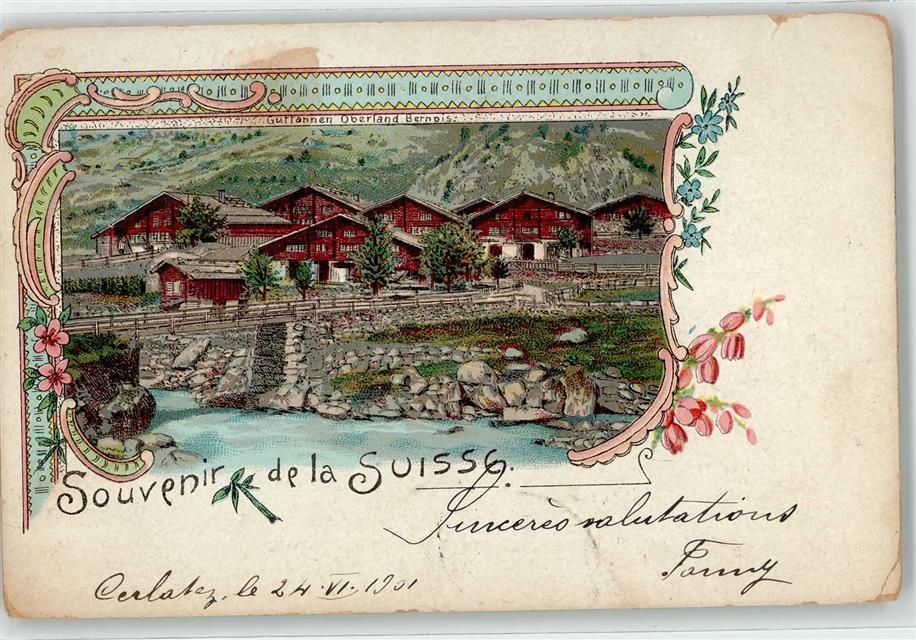 Guttannen Oberland Bernois.
Souvenir de la Suisse.
Sincères salutations
Fanny
Cerlatez, le 24.VI.1901